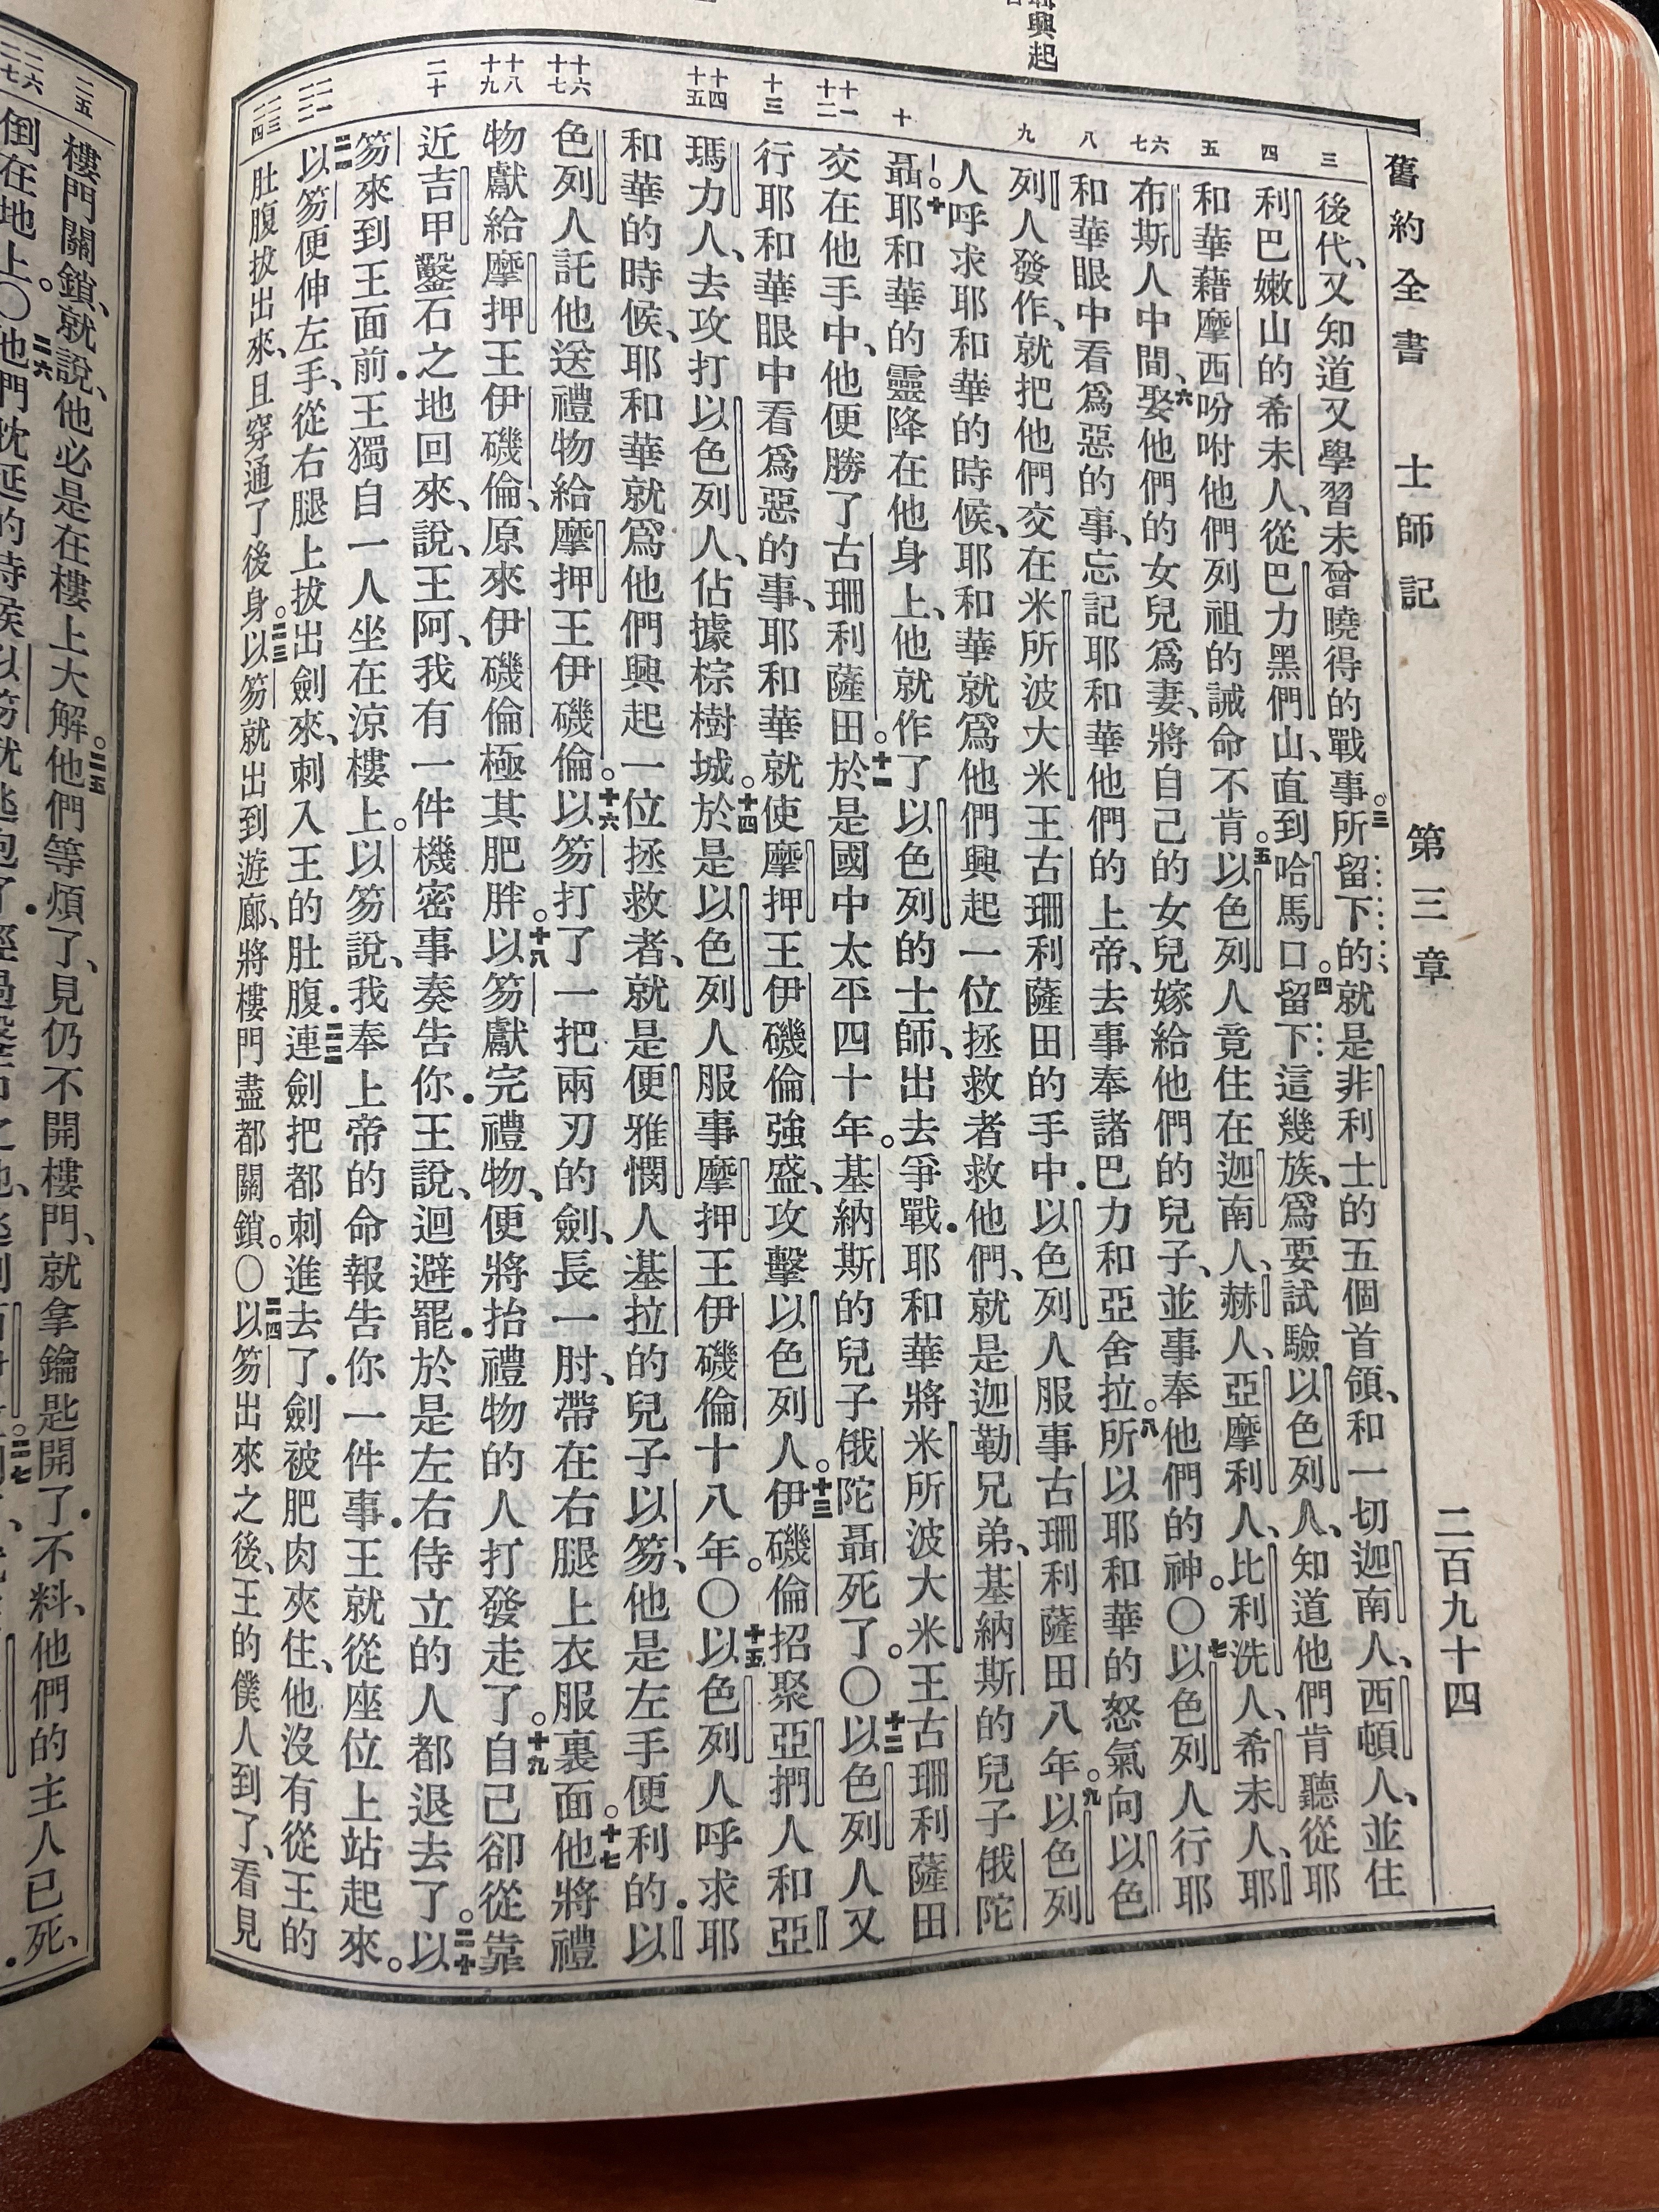 興起
舊約全書 士師記 第三章 二百九十四
三 四 五 六 七 八 九 十 十一 十二 十三 十四 十五 十六 十七 十八 十九 二十 二一 二二 二三 二四
後代、又知道又學習未曾曉得的戰事。三所留下的、就是非利士的五個首領、和一切迦南人、西頓人、並住
利巴嫩山的希未人、從巴力黑們山、直到哈馬口。四留下這幾族、爲要試驗以色列人、知道他們肯聽從耶
和華藉摩西吩咐他們列祖的誡命不肯。五以色列人竟住在迦南人、赫人、亞摩利人、比利洗人、希未人、耶
布斯人中間、六娶他們的女兒爲妻、將自己的女兒嫁給他們的兒子、並事奉他們的神。○七以色列人行耶
和華眼中看爲惡的事、忘記耶和華他們的上帝、去事奉諸巴力和亞舍拉。八所以耶和華的怒氣向以色
列人發作、就把他們交在米所波大米王古珊利薩田的手中．以色列人服事古珊利薩田八年。九以色列
人呼求耶和華的時候、耶和華就爲他們興起一位拯救者救他們、就是迦勒兄弟、基納斯的兒子俄陀
聶。十耶和華的靈降在他身上、他就作了以色列的士師、出去爭戰．耶和華將米所波大米王古珊利薩田
交在他手中、他便勝了古珊利薩田。十一於是國中太平四十年。基納斯的兒子俄陀聶死了。○十二以色列人又
行耶和華眼中看爲惡的事、耶和華就使摩押王伊磯倫強盛、攻擊以色列人。十三伊磯倫招聚亞捫人和亞
瑪力人、去攻打以色列人、佔據棕樹城。十四於是以色列人服事摩押王伊磯倫十八年。○十五以色列人呼求耶
和華的時候、耶和華就爲他們興起一位拯救者、就是便雅憫人基拉的兒子以笏、他是左手便利的．以
色列人託他送禮物給摩押王伊磯倫。十六以笏打了一把兩刃的劍、長一肘、帶在右腿上衣服裏面。十七他將禮
物獻給摩押王伊磯倫、原來伊磯倫極其肥胖。十八以笏獻完禮物、便將抬禮物的人打發走了。十九自己卻從靠
近吉甲鑿石之地回來、說、王阿、我有一件機密事奏告你．王說、迴避罷．於是左右侍立的人都退去了。二十以
笏來到王面前．王獨自一人坐在涼樓上。以笏說、我奉上帝的命報告你一件事．王就從座位上站起來。
二一以笏便伸左手、從右腿上拔出劍來、刺入王的肚腹．二二連劍把都刺進去了．劍被肥肉夾住、他沒有從王的
肚腹拔出來、且穿通了後身。二三以笏就出到遊廊、將樓門盡都關鎖。○二四以笏出來之後、王的僕人到了、看見
二五 二六 二七
樓門關鎖、就說、他必是在樓上大解。二五他們等煩了、見仍不開樓門、就拿鑰匙開了．不料、他們的主人已死、
倒在地上。○二六他們